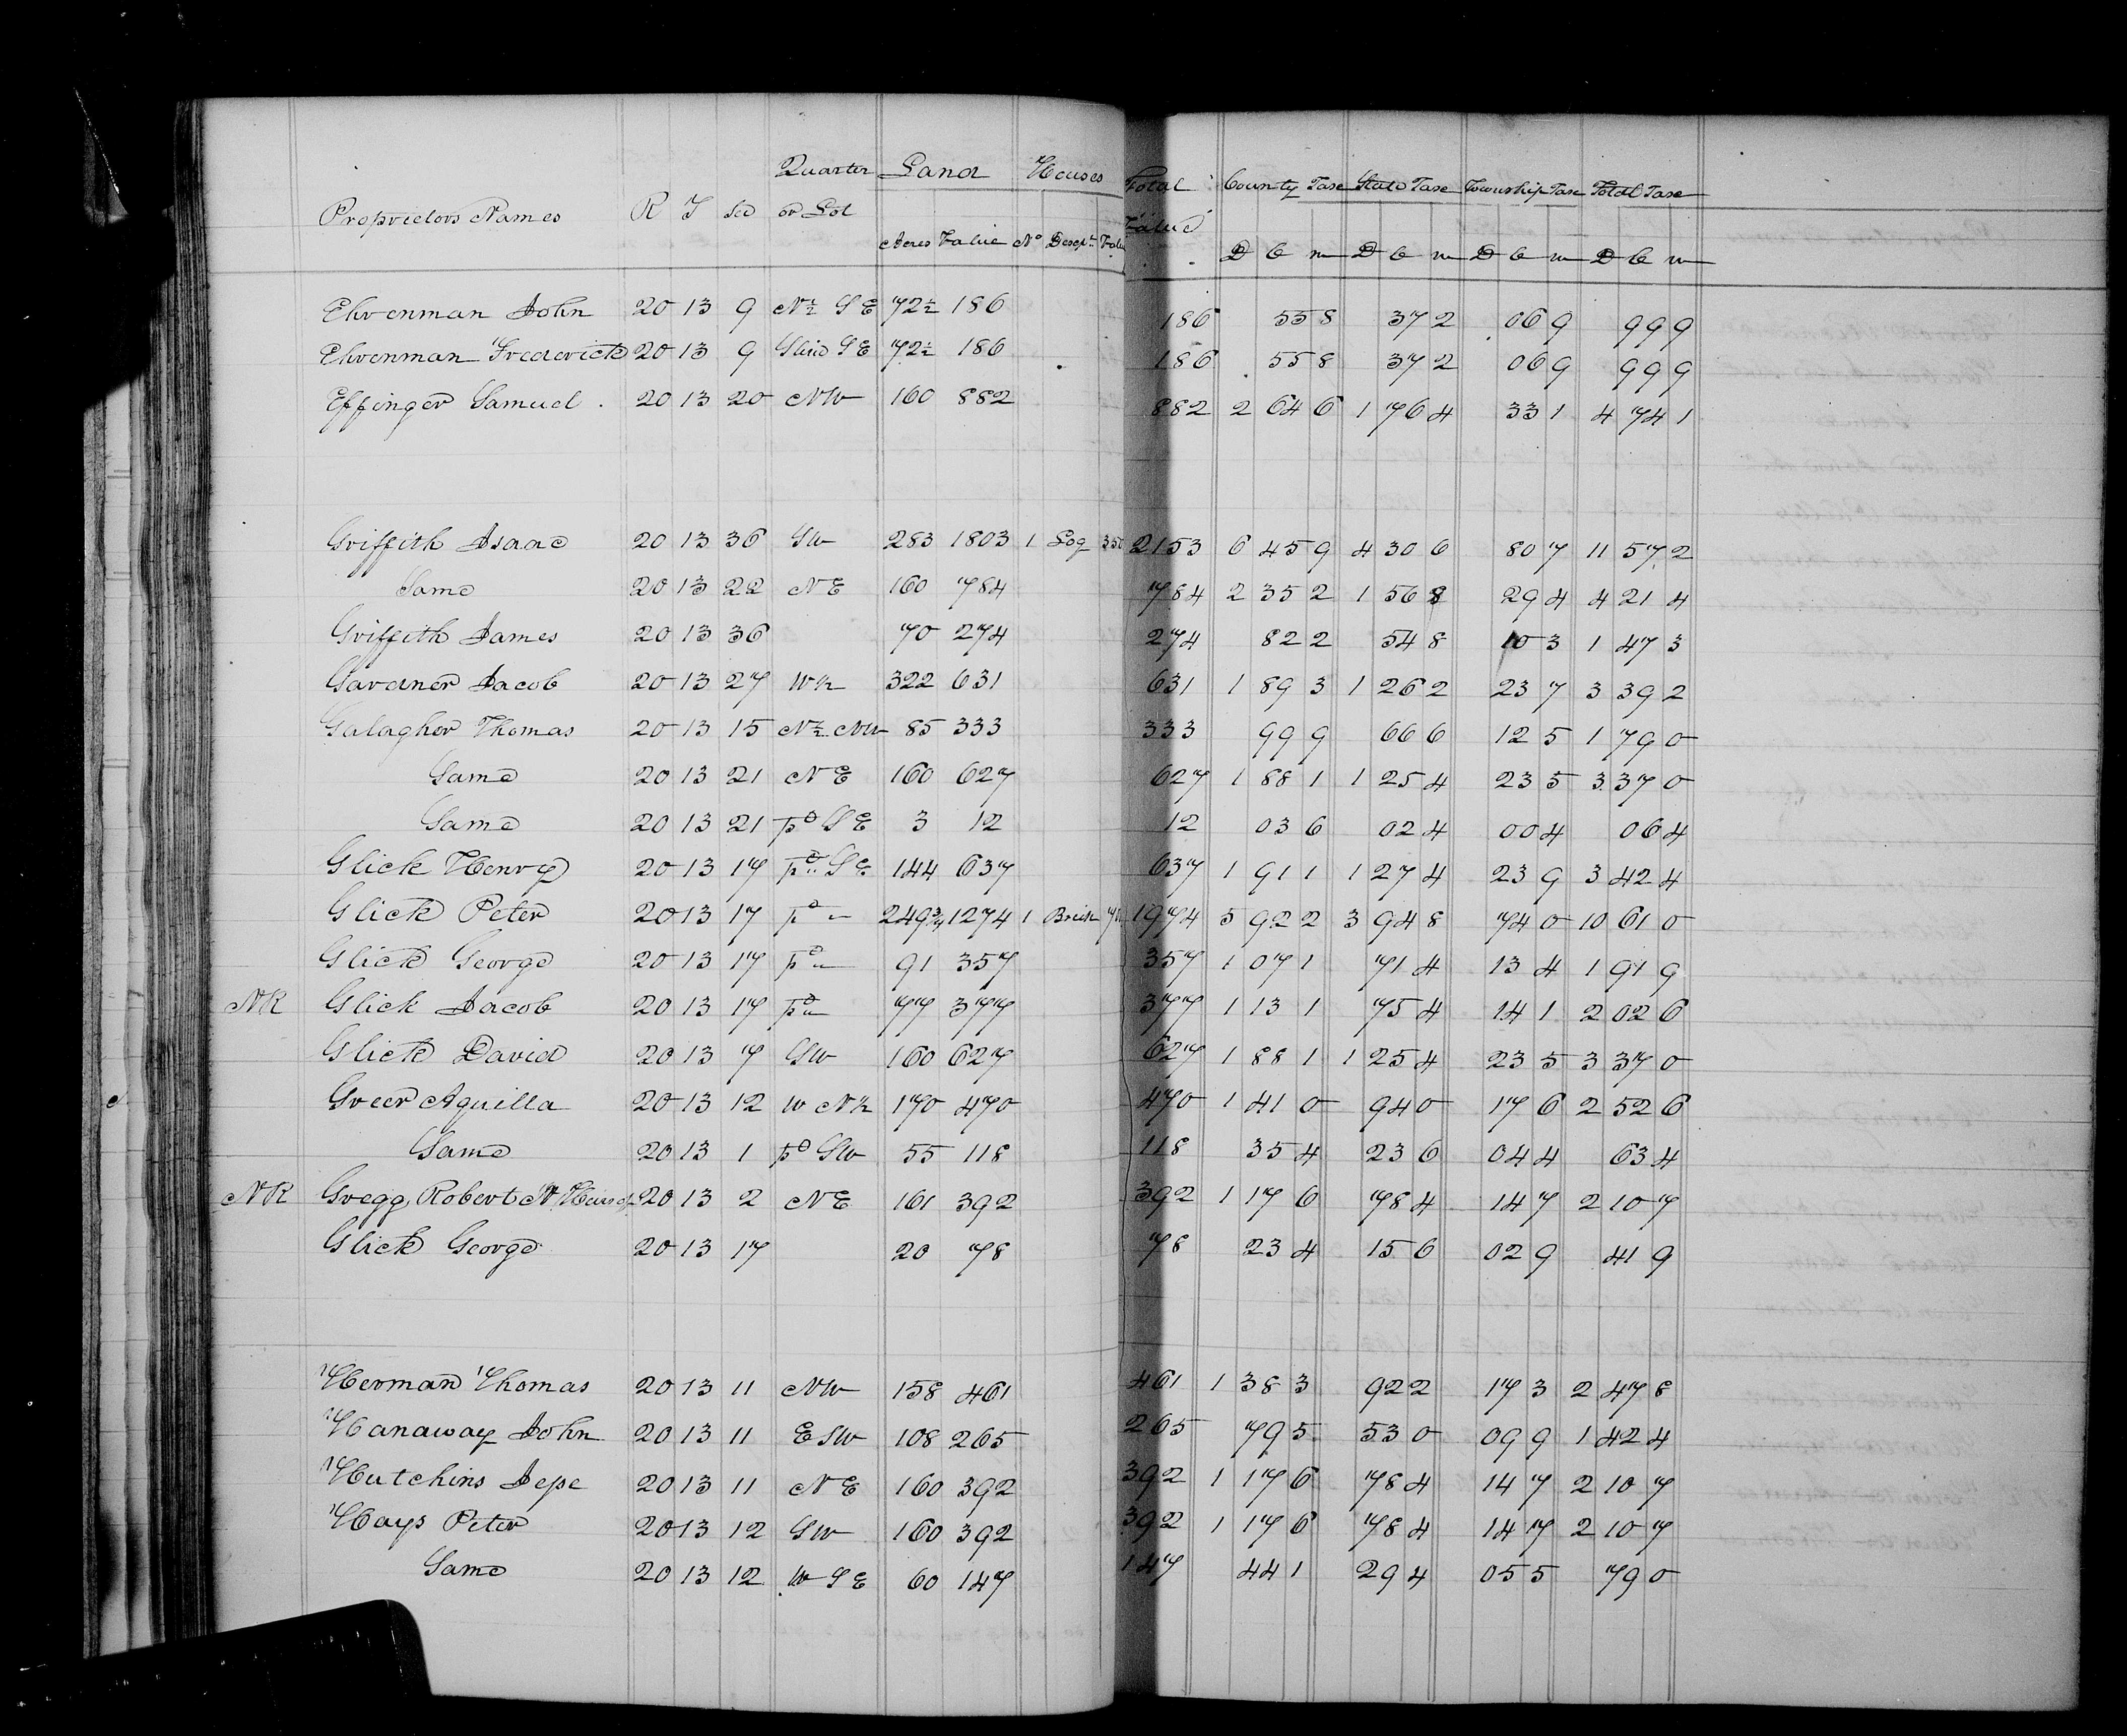 Quarter Land Houses Total County Taxe State Taxe Township Taxe Total Taxe
Proprietors Names R T Sec or Lot Value
Acres Value No Descpt Valu D C m D C m D C m D C m
Ehrenman John 20 13 9 N½ S E 72½ 186 186 55 8 37 2 06 9 99 9
Ehrenman Frederick 20 13 9 S E 72½ 186 186 55 8 37 2 06 9 99 9
Effinger Samuel 20 13 20 NW 160 882 882 2 64 6 1 76 4 33 1 4 74 1
Griffith Isaac 20 13 36 SW 283 1803 1 Log 350 2153 6 45 9 4 30 6 80 7 11 57 2
Same 20 13 22 N E 160 784 784 2 35 2 1 56 8 29 4 4 21 4
Griffith James 20 13 36 70 274 274 82 2 54 8 10 3 1 47 3
Gardner Jacob 20 13 27 W½ 322 631 631 1 89 3 1 26 2 23 7 3 39 2
Galagher Thomas 20 13 15 N½ NW 85 333 333 99 9 66 6 12 5 1 79 0
Same 20 13 21 N E 160 627 627 1 88 1 1 25 4 23 5 3 37 0
Same 20 13 21 pt S E 3 12 12 03 6 02 4 00 4 06 4
Glick Henry 20 13 17 pt S E 144 637 637 1 91 1 1 27 4 23 9 3 42 4
Glick Peter 20 13 17 pt " 249¾ 1274 1 Brick 1974 5 92 2 3 94 8 74 0 10 61 0
Glick George 20 13 17 pt " 91 357 357 1 07 1 71 4 13 4 1 91 9
NR Glick Jacob 20 13 17 pt " 77 377 377 1 13 1 75 4 14 1 2 02 6
Glick David 20 13 7 SW 160 627 627 1 88 1 1 25 4 23 5 3 37 0
Greer Aquilla 20 13 12 W N½ 170 470 470 1 41 0 94 0 17 6 2 52 6
Same 20 13 1 pt SW 55 118 118 35 4 23 6 04 4 63 4
NR Gregg Robert N Heirs of 20 13 2 N E 161 392 392 1 17 6 78 4 14 7 2 10 7
Glick George 20 13 17 20 78 78 23 4 15 6 02 9 41 9
Herman Thomas 20 13 11 NW 158 461 461 1 38 3 92 2 17 3 2 47 8
Hanaway John 20 13 11 E SW 108 265 265 79 5 53 0 09 9 1 42 4
Hutchins Jesse 20 13 11 N E 160 392 392 1 17 6 78 4 14 7 2 10 7
Hays Peter 20 13 12 SW 160 392 392 1 17 6 78 4 14 7 2 10 7
Same 20 13 12 W S E 60 147 147 44 1 29 4 05 5 79 0